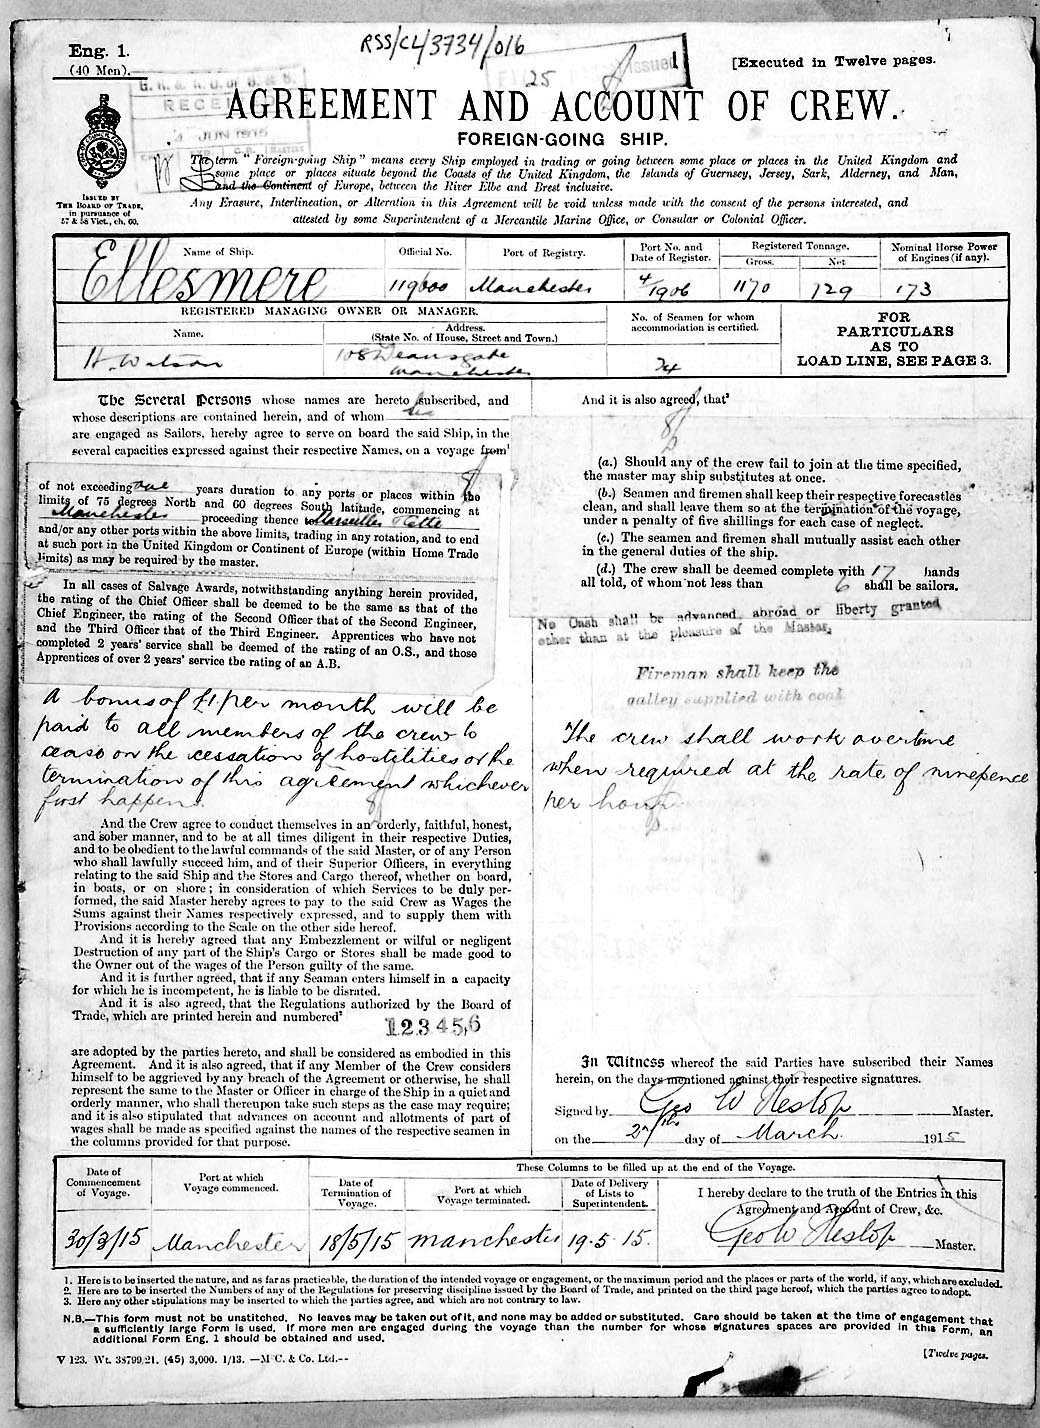 RSS/CL/3734/016
Eng. 1.
(40 Men).
25
Issued
[Executed in Twelve pages.
RECEIVED
AGREEMENT AND ACCOUNT OF CREW.
FOREIGN-GOING SHIP.
The term "Foreign-going Ship" means every Ship employed in trading or going between some place or places in the United Kingdom and
some place or places situate beyond the Coasts of the United Kingdom, the Islands of Guernsey, Jersey, Sark, Alderney, and Man,
and the Continent of Europe, between the River Elbe and Brest inclusive.
Any Erasure, Interlineation, or Alteration in this Agreement will be void unless made with the consent of the persons interested, and
attested by some Superintendent of a Mercantile Marine Office, or Consular or Colonial Officer.
ISSUED BY
THE BOARD OF TRADE,
in pursuance of
57 & 58 Vict., ch. 60.
Name of Ship. Official No. Port of Registry. Port No. and Date of Register. Registered Tonnage. Gross. Net. Nominal Horse Power of Engines (if any).
Ellesmere 119600 Manchester 4/1906 1170 729 173
REGISTERED MANAGING OWNER OR MANAGER.
Name. Address. (State No. of House, Street and Town.)
No. of Seamen for whom accommodation is certified.
FOR
PARTICULARS
AS TO
LOAD LINE, SEE PAGE 3.
H. Watson 108 Deansgate Manchester 24
The Several Persons whose names are hereto subscribed, and
whose descriptions are contained herein, and of whom six
are engaged as Sailors, hereby agree to serve on board the said Ship, in the
several capacities expressed against their respective Names, on a voyage from¹
of not exceeding one years duration to any ports or places within the
limits of 75 degrees North and 60 degrees South latitude, commencing at
Manchester proceeding thence to Marseilles Cette
and/or any other ports within the above limits, trading in any rotation, and to end
at such port in the United Kingdom or Continent of Europe (within Home Trade
limits) as may be required by the master.
In all cases of Salvage Awards, notwithstanding anything herein provided,
the rating of the Chief Officer shall be deemed to be the same as that of the
Chief Engineer, the rating of the Second Officer that of the Second Engineer,
and the Third Officer that of the Third Engineer. Apprentices who have not
completed 2 years' service shall be deemed of the rating of an O.S., and those
Apprentices of over 2 years' service the rating of an A.B.
A bonus of £1 per month will be
paid to all members of the crew to
cease on the cessation of hostilities or the
termination of this agreement whichever
first happens.
And the Crew agree to conduct themselves in an orderly, faithful, honest,
and sober manner, and to be at all times diligent in their respective Duties,
and to be obedient to the lawful commands of the said Master, or of any Person
who shall lawfully succeed him, and of their Superior Officers, in everything
relating to the said Ship and the Stores and Cargo thereof, whether on board,
in boats, or on shore; in consideration of which Services to be duly per-
formed, the said Master hereby agrees to pay to the said Crew as Wages the
Sums against their Names respectively expressed, and to supply them with
Provisions according to the Scale on the other side hereof.
And it is hereby agreed that any Embezzlement or wilful or negligent
Destruction of any part of the Ship's Cargo or Stores shall be made good to
the Owner out of the wages of the Person guilty of the same.
And it is further agreed, that if any Seaman enters himself in a capacity
for which he is incompetent, he is liable to be disrated.
And it is also agreed, that the Regulations authorized by the Board of
Trade, which are printed herein and numbered²
123456
are adopted by the parties hereto, and shall be considered as embodied in this
Agreement. And it is also agreed, that if any Member of the Crew considers
himself to be aggrieved by any breach of the Agreement or otherwise, he shall
represent the same to the Master or Officer in charge of the Ship in a quiet and
orderly manner, who shall thereupon take such steps as the case may require;
and it is also stipulated that advances on account and allotments of part of
wages shall be made as specified against the names of the respective seamen in
the columns provided for that purpose.
And it is also agreed, that³
(a.) Should any of the crew fail to join at the time specified,
the master may ship substitutes at once.
(b.) Seamen and firemen shall keep their respective forecastles
clean, and shall leave them so at the termination of the voyage,
under a penalty of five shillings for each case of neglect.
(c.) The seamen and firemen shall mutually assist each other
in the general duties of the ship.
(d.) The crew shall be deemed complete with 17 hands
all told, of whom not less than 6 shall be sailors.
No Cash shall be advanced abroad or liberty granted
other than at the pleasure of the Master.
Fireman shall keep the
galley supplied with coal
The crew shall work overtime
when required at the rate of ninepence
per hour
In Witness whereof the said Parties have subscribed their Names
herein, on the days mentioned against their respective signatures.
Signed by Geo W Heslop Master.
on the 27th day of March 1915
Date of Commencement of Voyage. Port at which Voyage commenced. These Columns to be filled up at the end of the Voyage.
Date of Termination of Voyage. Port at which Voyage terminated. Date of Delivery of Lists to Superintendent.
I hereby declare to the truth of the Entries in this
Agreement and Account of Crew, &c.
30/3/15 Manchester 18/5/15 Manchester 19.5.15. Geo W Heslop Master.
1. Here is to be inserted the nature, and as far as practicable, the duration of the intended voyage or engagement, or the maximum period and the places or parts of the world, if any, which are excluded.
2. Here are to be inserted the Numbers of any of the Regulations for preserving discipline issued by the Board of Trade, and printed on the third page hereof, which the parties agree to adopt.
3. Here any other stipulations may be inserted to which the parties agree, and which are not contrary to law.
N.B.—This form must not be unstitched. No leaves may be taken out of it, and none may be added or substituted. Care should be taken at the time of engagement that
a sufficiently large Form is used. If more men are engaged during the voyage than the number for whose signatures spaces are provided in this Form, an
additional Form Eng. 1 should be obtained and used.
V 123. Wt. 38799/21. (45) 3,000. 1/13. —M'C. & Co. Ltd.--
[Twelve pages.